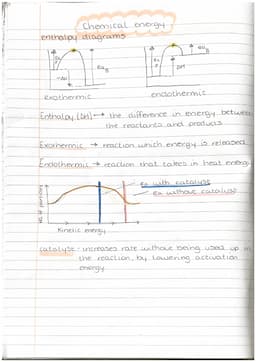 Chemical energy
enthalpy diagrams
Ea
-ΔH
Ea
ΔH
exothermic
endothermic
Enthalpy (ΔH) → the difference in energy between
the reactants and products
Exothermic → reaction which energy is released
Endothermic → reaction that takes in heat energy
Ea with catalyst
Ea without catalyst
no. of particles
Kinetic energy
catalyst - increases rate without being used up in
the reaction, by lowering activation
energy